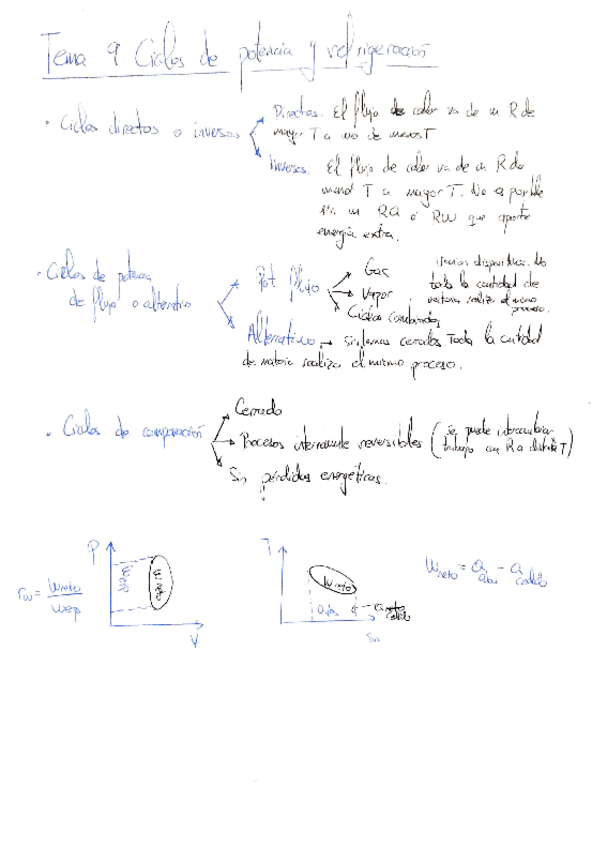 Tema 9 Ciclos de potencia y refrigeración
· Ciclos directos o inversos
Directos. El flujo de calor va de un R de
mayor T a uno de menos T
Inversos. El flujo de calor va de un R de
menor T a mayor T. No es posible
sin un RQ o RW que aporte
energía extra.
· Ciclos de potencia
de flujo o alternativo
Pot flujo
Gas
Vapor
Ciclos combinados
dispositivos. No
toda la cantidad de
materia realiza el mismo
proceso.
Alternativo → Sistemas cerrados Toda la cantidad
de materia realiza el mismo proceso.
· Ciclos de comparación
Cerrado
Procesos internamente reversibles (se puede intercambiar
trabajo con R a distinta T)
Sin pérdidas energéticas.
rw = Wneto / Wexp
P
Wexp
Wneto
V
T
Wneto
Qabs
Wneto = Qabs - Qcedido